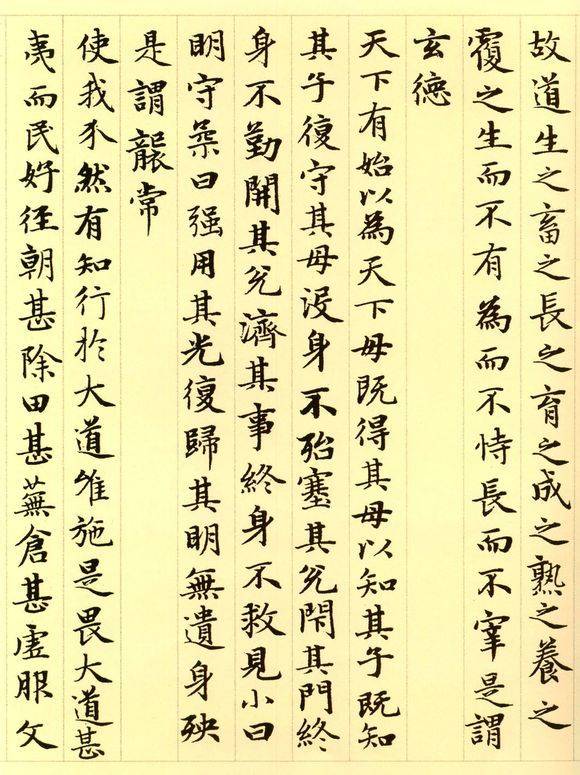 故道生之畜之長之育之成之熟之養之
覆之生而不有為而不恃長而不宰是謂
玄德
天下有始以為天下母既得其母以知其子既知
其子復守其母没身不殆塞其兌閉其門終
身不勤開其兌濟其事終身不救見小曰
明守柔曰强用其光復歸其明無遺身殃
是謂襲常
使我介然有知行於大道唯施是畏大道甚
夷而民好徑朝甚除田甚蕪倉甚虛服文